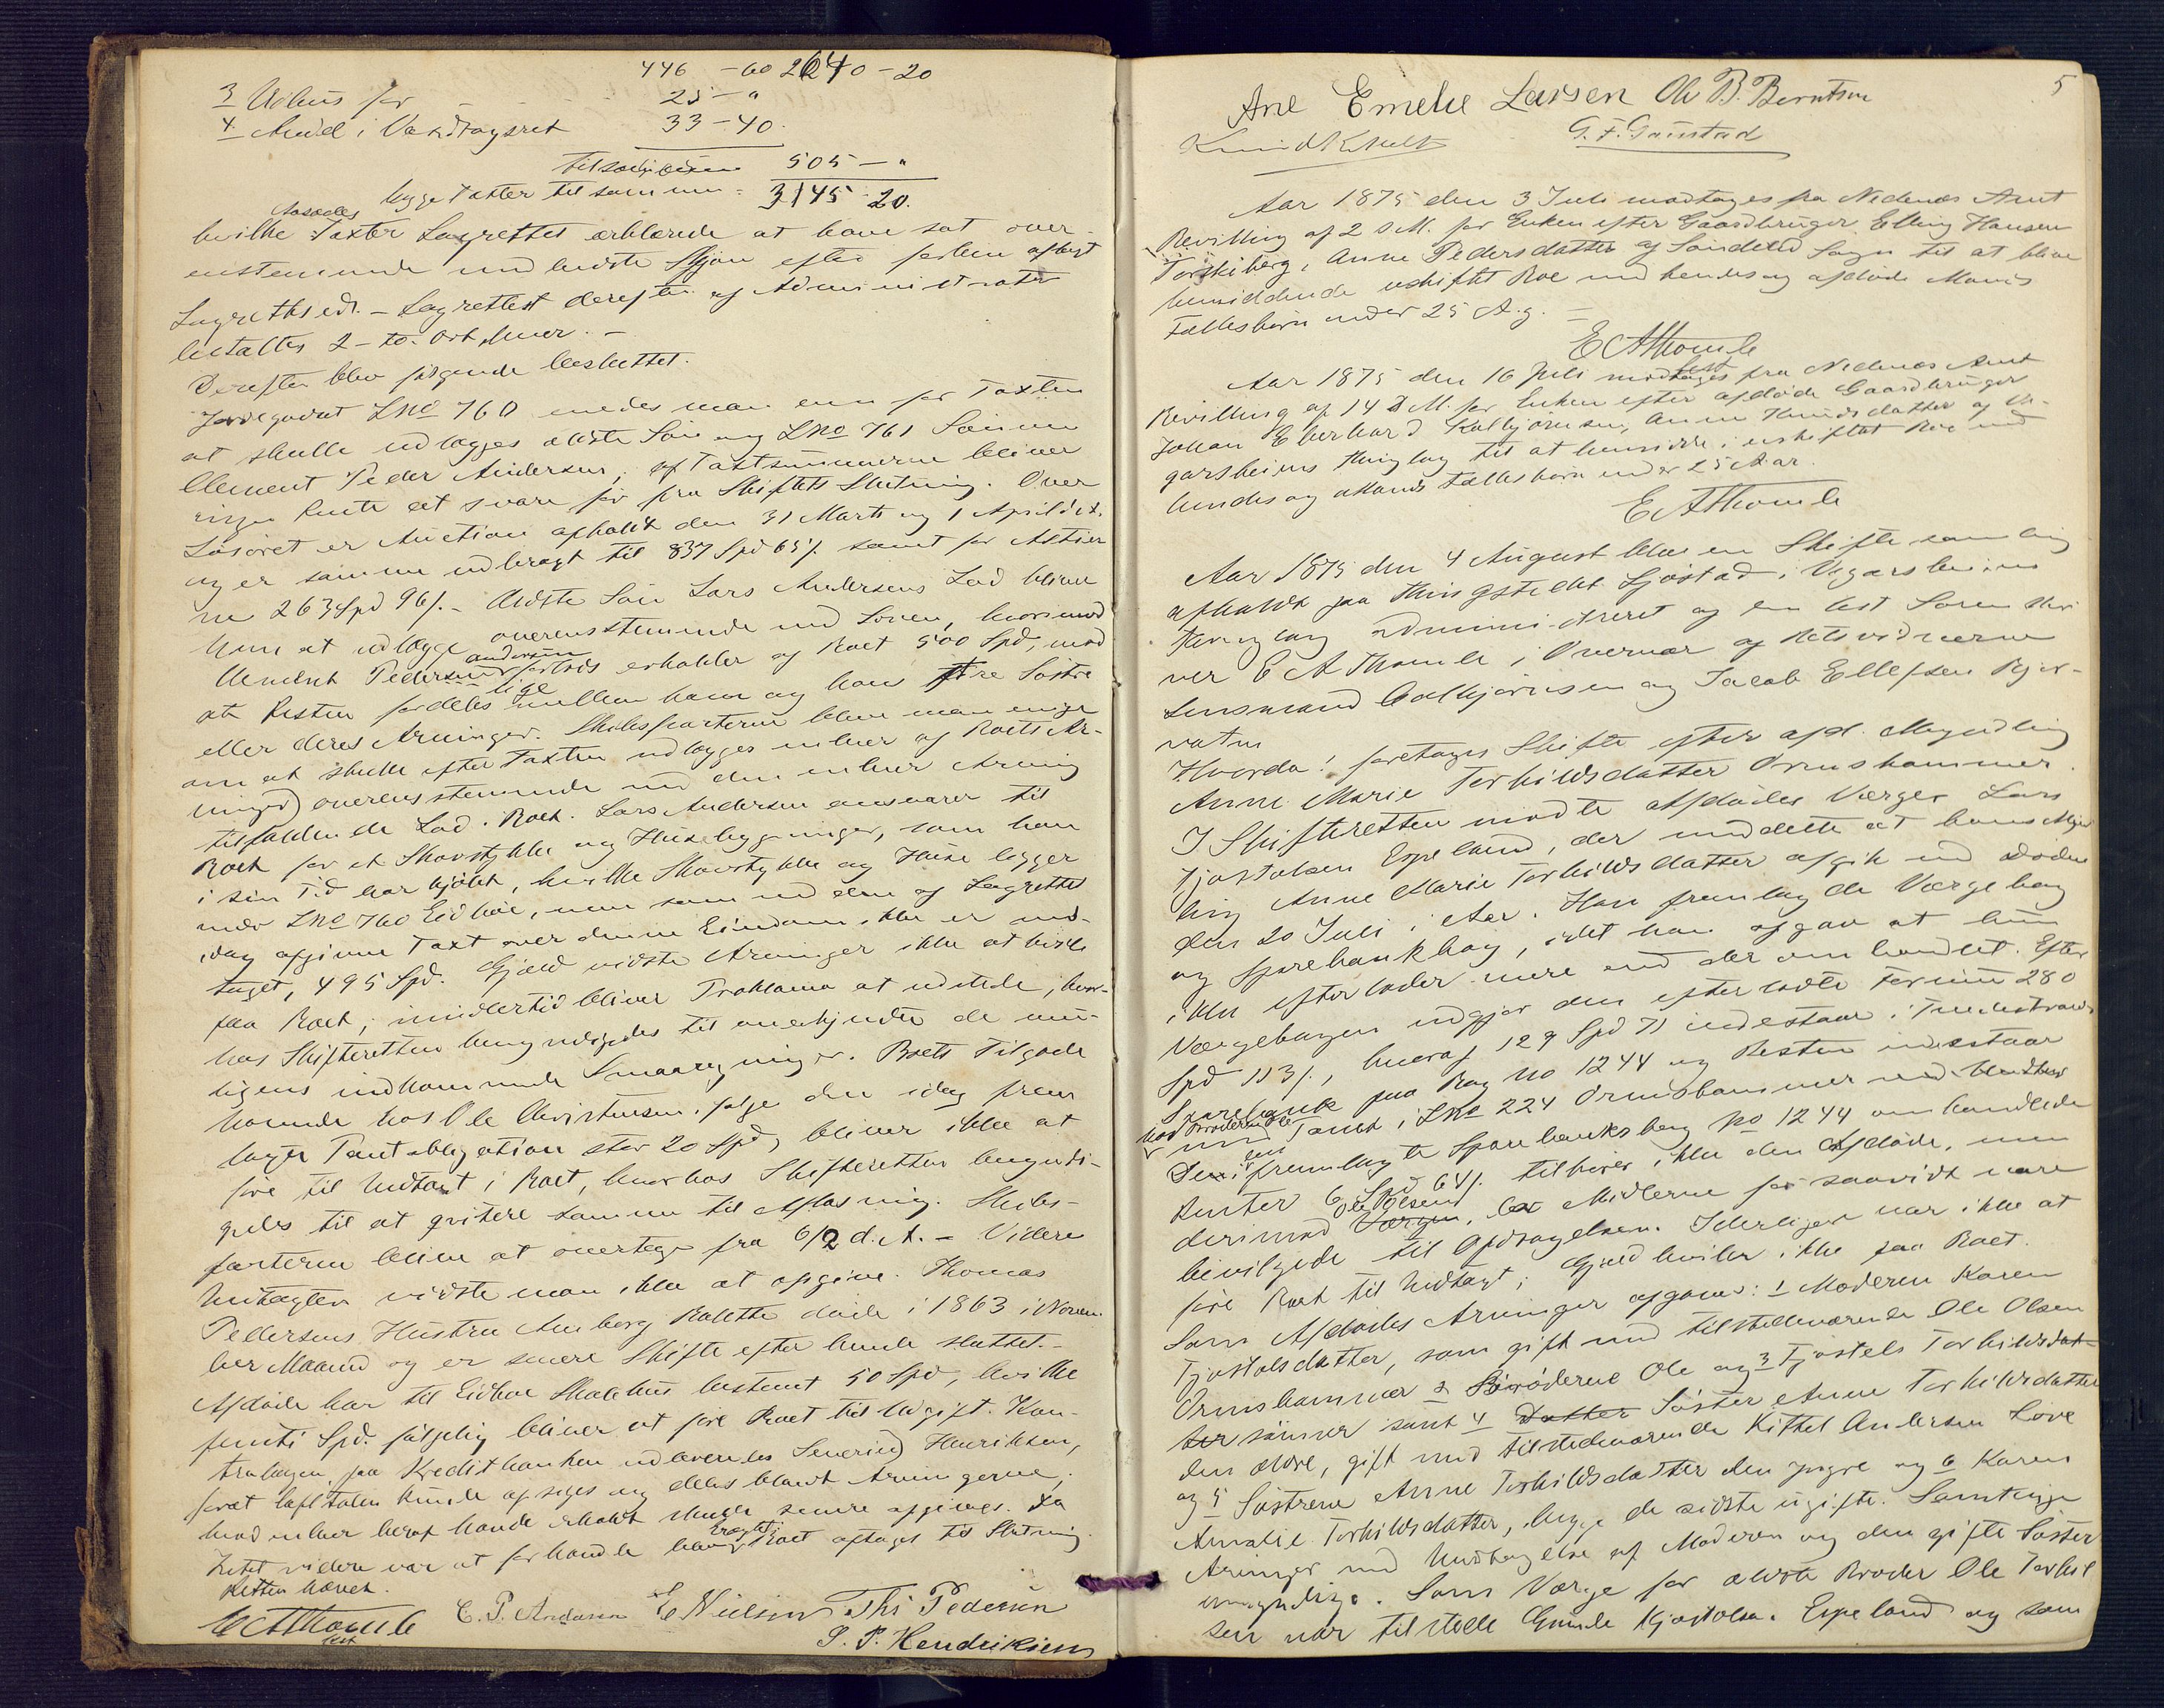 446 - 60 2640 - 20
3 Udhus for 25 - "
4 Andel i Vandsagsret 33 - 40.
tilsammen 505 - "
begge Taxter tilsammen = 3145 - 20.
hvilke Taxter Lagrettet erklærede at have sat over-
enstemmende med bedste Skjøn efter forhen aflagt
Lagrettesed. - Lagrettet derefter af Administrator
betaltes 2 - to - Ort hver. -
Derefter blev følgende besluttet.
Jordegodset LNo 760 enedes man om for Taxten
at skulle udlægges ældste Søn og LNo 761 Sønnen
Clement Peder Andersen, af Taxtsummerne bliver
ingen Rente at svare før fra Skiftets Slutning. Over
Løsøret er Auction afholdt den 31 Marts og 1 April d.A.
og er samme udbragt til 837 Spd 65/. samt for Aktier
ne 263 Spd 96/. - Ældste Søn Lars Andersens Lod bliver
ham at udlægge overensstemmende med Loven, hvorimod
Clement Pedersen Andersen forlods erholder af Boet 500 Spd, mod
at Resten fordeles lige mellem ham og hans tre Søstre
eller deres Arvinger. Skibsparterne blev man enige
om at skulle efter Taxten udlægges enhver af Boets Ar-
vinger overensstemmende med den enhver Arving
tilfaldende Lod i Boet. Lars Andersen ansvarer til
Boet for et Skovstykke og Husebygninger, som han
i sin Tid har kjøbt, hvilke Skovstykke og Huse ligger
under LNo 760 Eidbøe, men som ved den af Lagrettet
idag afgivne Taxt over denne Eiendom ikke er med-
taget, 495 Spd. Gjæld vidste Arvinger ikke at hvile
paa Boet; imidlertid bliver Proklama at udstede, hvor-
hos Skifteretten bemyndigedes til anerkjendte de mu-
ligens indkommende Smaaregninger. Boets Tilgode
havende hos Ole Christensen ifølge den idag frem
lagte Pantobligation stor 20 Spd, bliver ikke at
føre til Indtægt i Boet, hvorhos Skifteretten bemyndi-
gedes til at qvitere samme til Aflæsning. Skibs-
parterne bliver at overtage fra 6/2 d.A. - Videre
Indtægter vidste man ikke at opgive. Thomas
Pedersens Hustru Anborg Kalette døde i 1863 i Novem-
ber Maaned og er senere Skifte efter hende sluttet. -
Afdøde har til Eidbøe Skolehus bestemt 50 Spd, hvilke
femti Spd. følgelig bliver at føre Boet til Udgift. Kon-
trabogen paa Kreditbanken udleveredes Severin Henriksen,
forat Capitalen kunde opsiges og deles blandt Arvingerne,
hvad enhver heraf havde erholdt skulde senere opgives. Da
Intet videre var at forhandle blev Boet optaget til Slutning
Retten hævet.
E A Thomle
C. P. Andersen E Nielsen Ths Pedersen
S. P. Hendriksen
5
Ane Emelie Larsen Ole B. Berntsen
G. F. Ganstad
Aar 1875 den 3 Juli modtages fra Nedenæs Amt
Bevilling af 2 d.M. for Enken efter Gaardbruger Elling Hansen
Torskeberg, Anne Pedersdatter af Søndeled Sogn til at blive
hensiddende i uskiftet Boe med hendes og afdøde Mands
Fællesbørn under 25 A. g. =
E A Thomle
Aar 1875 den 16 Juli modtages fra Nedenæs Amt
Bevilling af 14 d M. for Enken efter afdøde Gaardbruger
Johan Eberhard Kalbjørnsen, Anne Knudsdatter af Ve-
garsheiens Thinglag til at hensidde i uskiftet Boe med
hendes og Mands Fællesbørn under 25 A ar.
E A Thomle
Aar 1875 den 4 August blev en Skiftesamling
afholdt paa Thingstedet Sjøstad i Vegarsheiens
Thinglag administreret af const Sorenskri
ver E A Thomle i Overvær af Retsvidnerne
Lensmand Kalbjørnsen og Jacob Ellefsen Bjor-
vatn
Hvorda: foretages Skifte efter afd. Myndling
Anne Marie Terkildsdatter Ormshammer.
I Skifteretten mødte Afdødes Værge Lars
Tjøstolsen Espeland, der meddelte at hans Mynd
ling Anne Marie Terkildsdatter afgik ved Døden
den 20 Juli i Aar. Han fremlagde Værgebog
og Sparebankbog, idet han opgav at hun
ikke efterlader mere end der omhandlet. Efter
Værgebogen udgjør den efterladte Formue 280
Spd 113/., hvoraf 129 Spd 71 indestaar i Tvedestrands
Sparebank paa Bog No 1244 og Resten indestaar
hos Broderen Ole mod Pant i LNo 224 Ormshammer
Den i fremlagte Sparebanksbog No 1244 omhandlede
Renter 6 Spd 64/. tilhører ikke den Afdøde, men
derimod Ole Olsen, Midlerne for saavidt være
bevilgede til Opdragelsen. Yderligere var ikke at
føre Boet til Indtægt; Gjæld hviler ikke paa Boet.
Som Afdødes Arvinger opgaves: 1 Moderen Karen
Tjøstolsdatter, som gift med tilstedeværende Ole Olsen
Ormshammer 2 Brøderne Ole og 3 Tjøstels Terkildsdat-
ter sønner samt 4 Datter Søster Anne Terkildsdatter
den ældre, gift med tilstedeværende Kittel Andersen Løve
og 5 Søstrene Anne Terkildsdatter den yngre og 6 Karen
Amalie Terkildsdatter, begge de sidste ugifte. Samtlige
Arvinger med Undtagelse af Moderen og den gifte Søster
umyndige. Som Værge for ældste Broder Ole Terkil
sen var tilstede Gunde Kjøstolsen Espeland og som